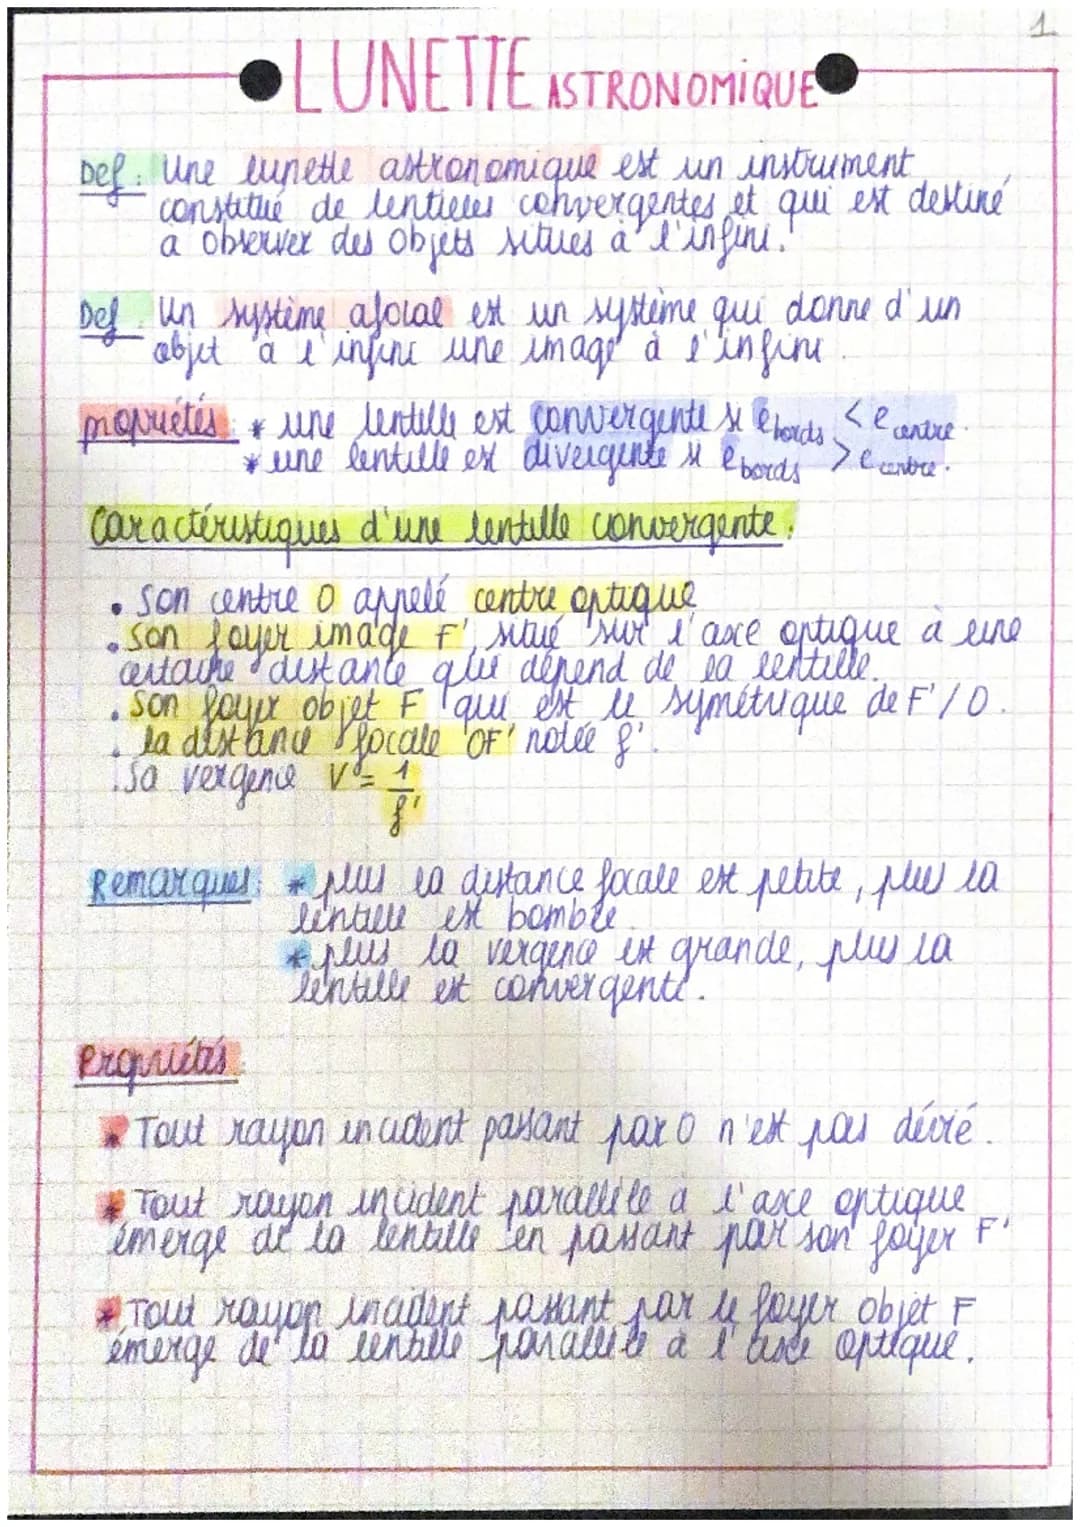 1
LUNETTE ASTRONOMIQUE
Def : Une lunette astronomique est un instrument
constitué de lentilles convergentes et qui est destiné
à observer des objets situés à l'infini.
Def : Un système afocal est un système qui donne d'un
objet à l'infini une image à l'infini.
propriétés : * une lentille est convergente si e bords < e centre.
* une lentille est divergente si e bords > e centre.
Caractéristiques d'une lentille convergente :
• Son centre O appelé centre optique
• Son foyer image F', situé sur l'axe optique à une
certaine distance qui dépend de la lentille.
• Son foyer objet F qui est le symétrique de F'/O.
• la distance focale OF' notée f'.
• Sa vergence V = 1/f'
Remarques : * plus la distance focale est petite, plus la
lentille est bombée.
* plus la vergence est grande, plus la
lentille est convergente.
Propriétés :
* Tout rayon incident passant par O n'est pas dévié.
* Tout rayon incident parallèle à l'axe optique
émerge de la lentille en passant par son foyer F'
* Tout rayon incident passant par le foyer objet F
émerge de la lentille parallèle à l'axe optique.